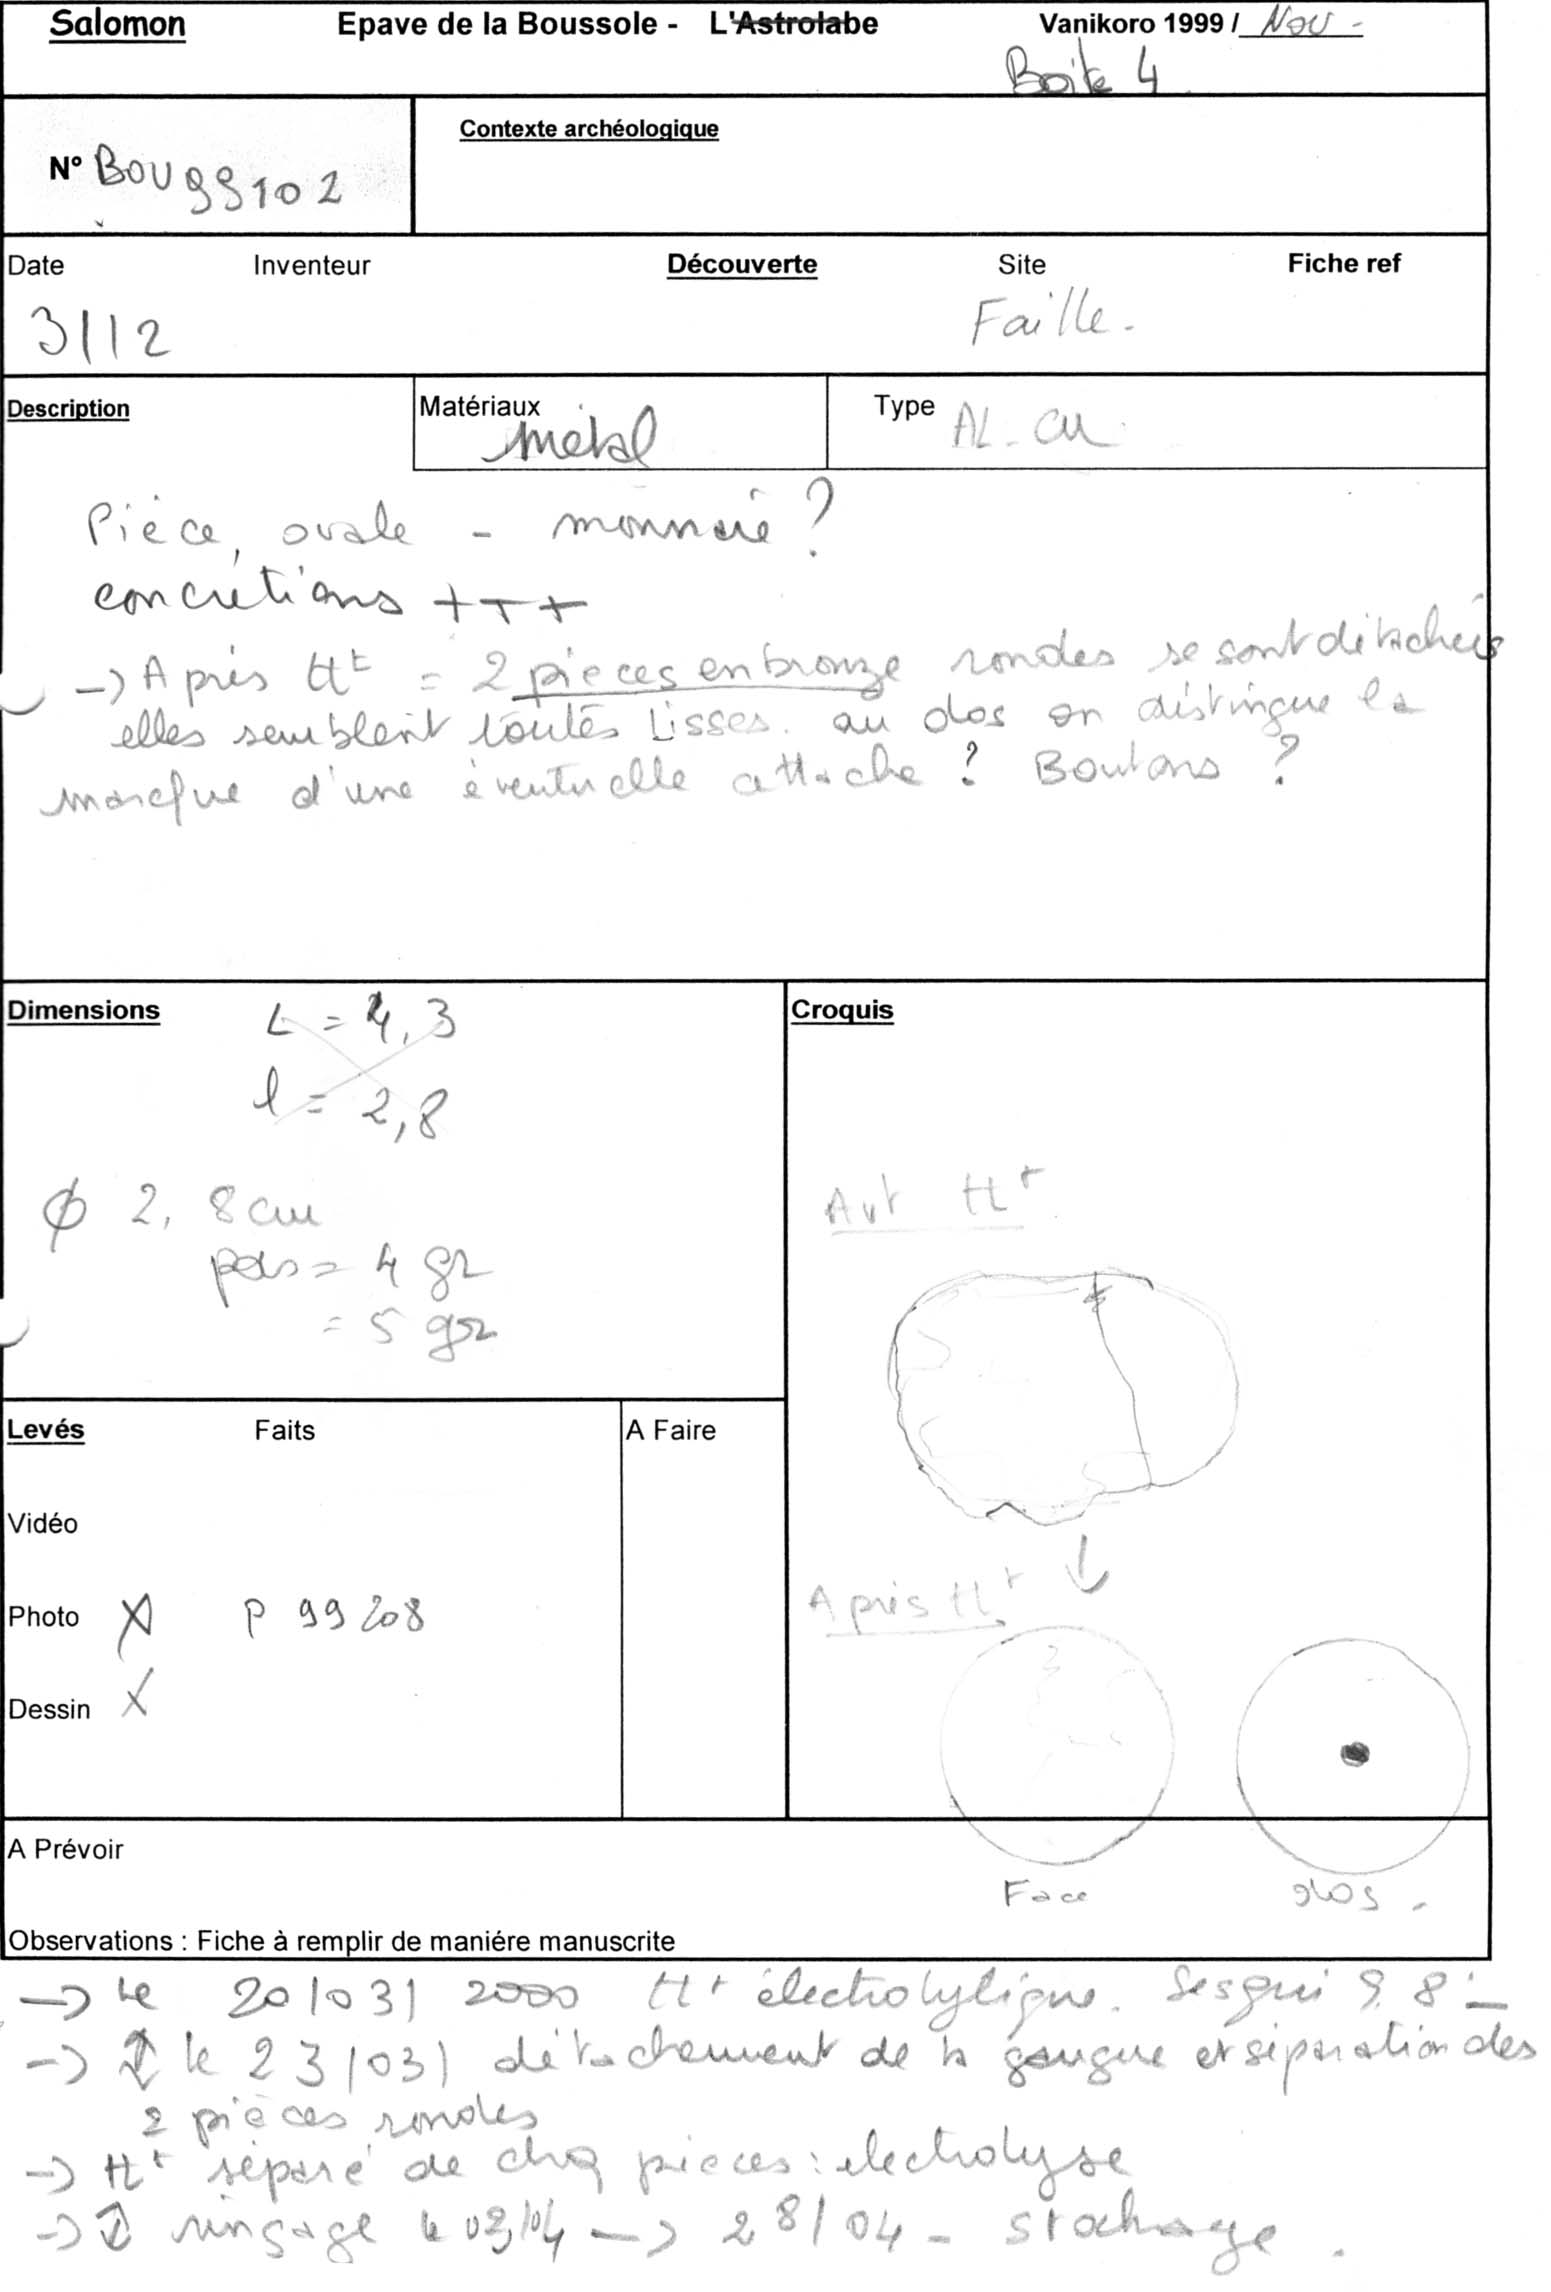 Salomon Epave de la Boussole - L'Astrolabe Vanikoro 1999 / Nov -
Boite 4
N° BOU 99102 Contexte archéologique
Date Inventeur Découverte Site Fiche ref
3/12 Faille.
Description Matériaux métal Type AL. Cu
Pièce, ovale - monnaie ?
concrétions +++
-> Après ttt = 2 pièces en bronze rondes se sont détachées
elles semblent toutes lisses. au dos on distingue la
marque d'une éventuelle attache ? Boutons ?
Dimensions
L = 4,3
l = 2,8
ø 2,8 cm
pds = 4 gr
= 5 gr
Croquis
Avt ttt
Après ttt
Face dos.
Levés Faits A Faire
Vidéo
Photo X P 99208
Dessin X
A Prévoir
Observations : Fiche à remplir de maniére manuscrite
-> Le 20/03/2000 ttt électrolytique. Sesqui 9.8
-> le 23/03/ détachement de la gangue et séparation des
2 pièces rondes
-> ttt séparé de chq pièces : électrolyse
-> rinçage le 03/04 -> 28/04 - stockage.